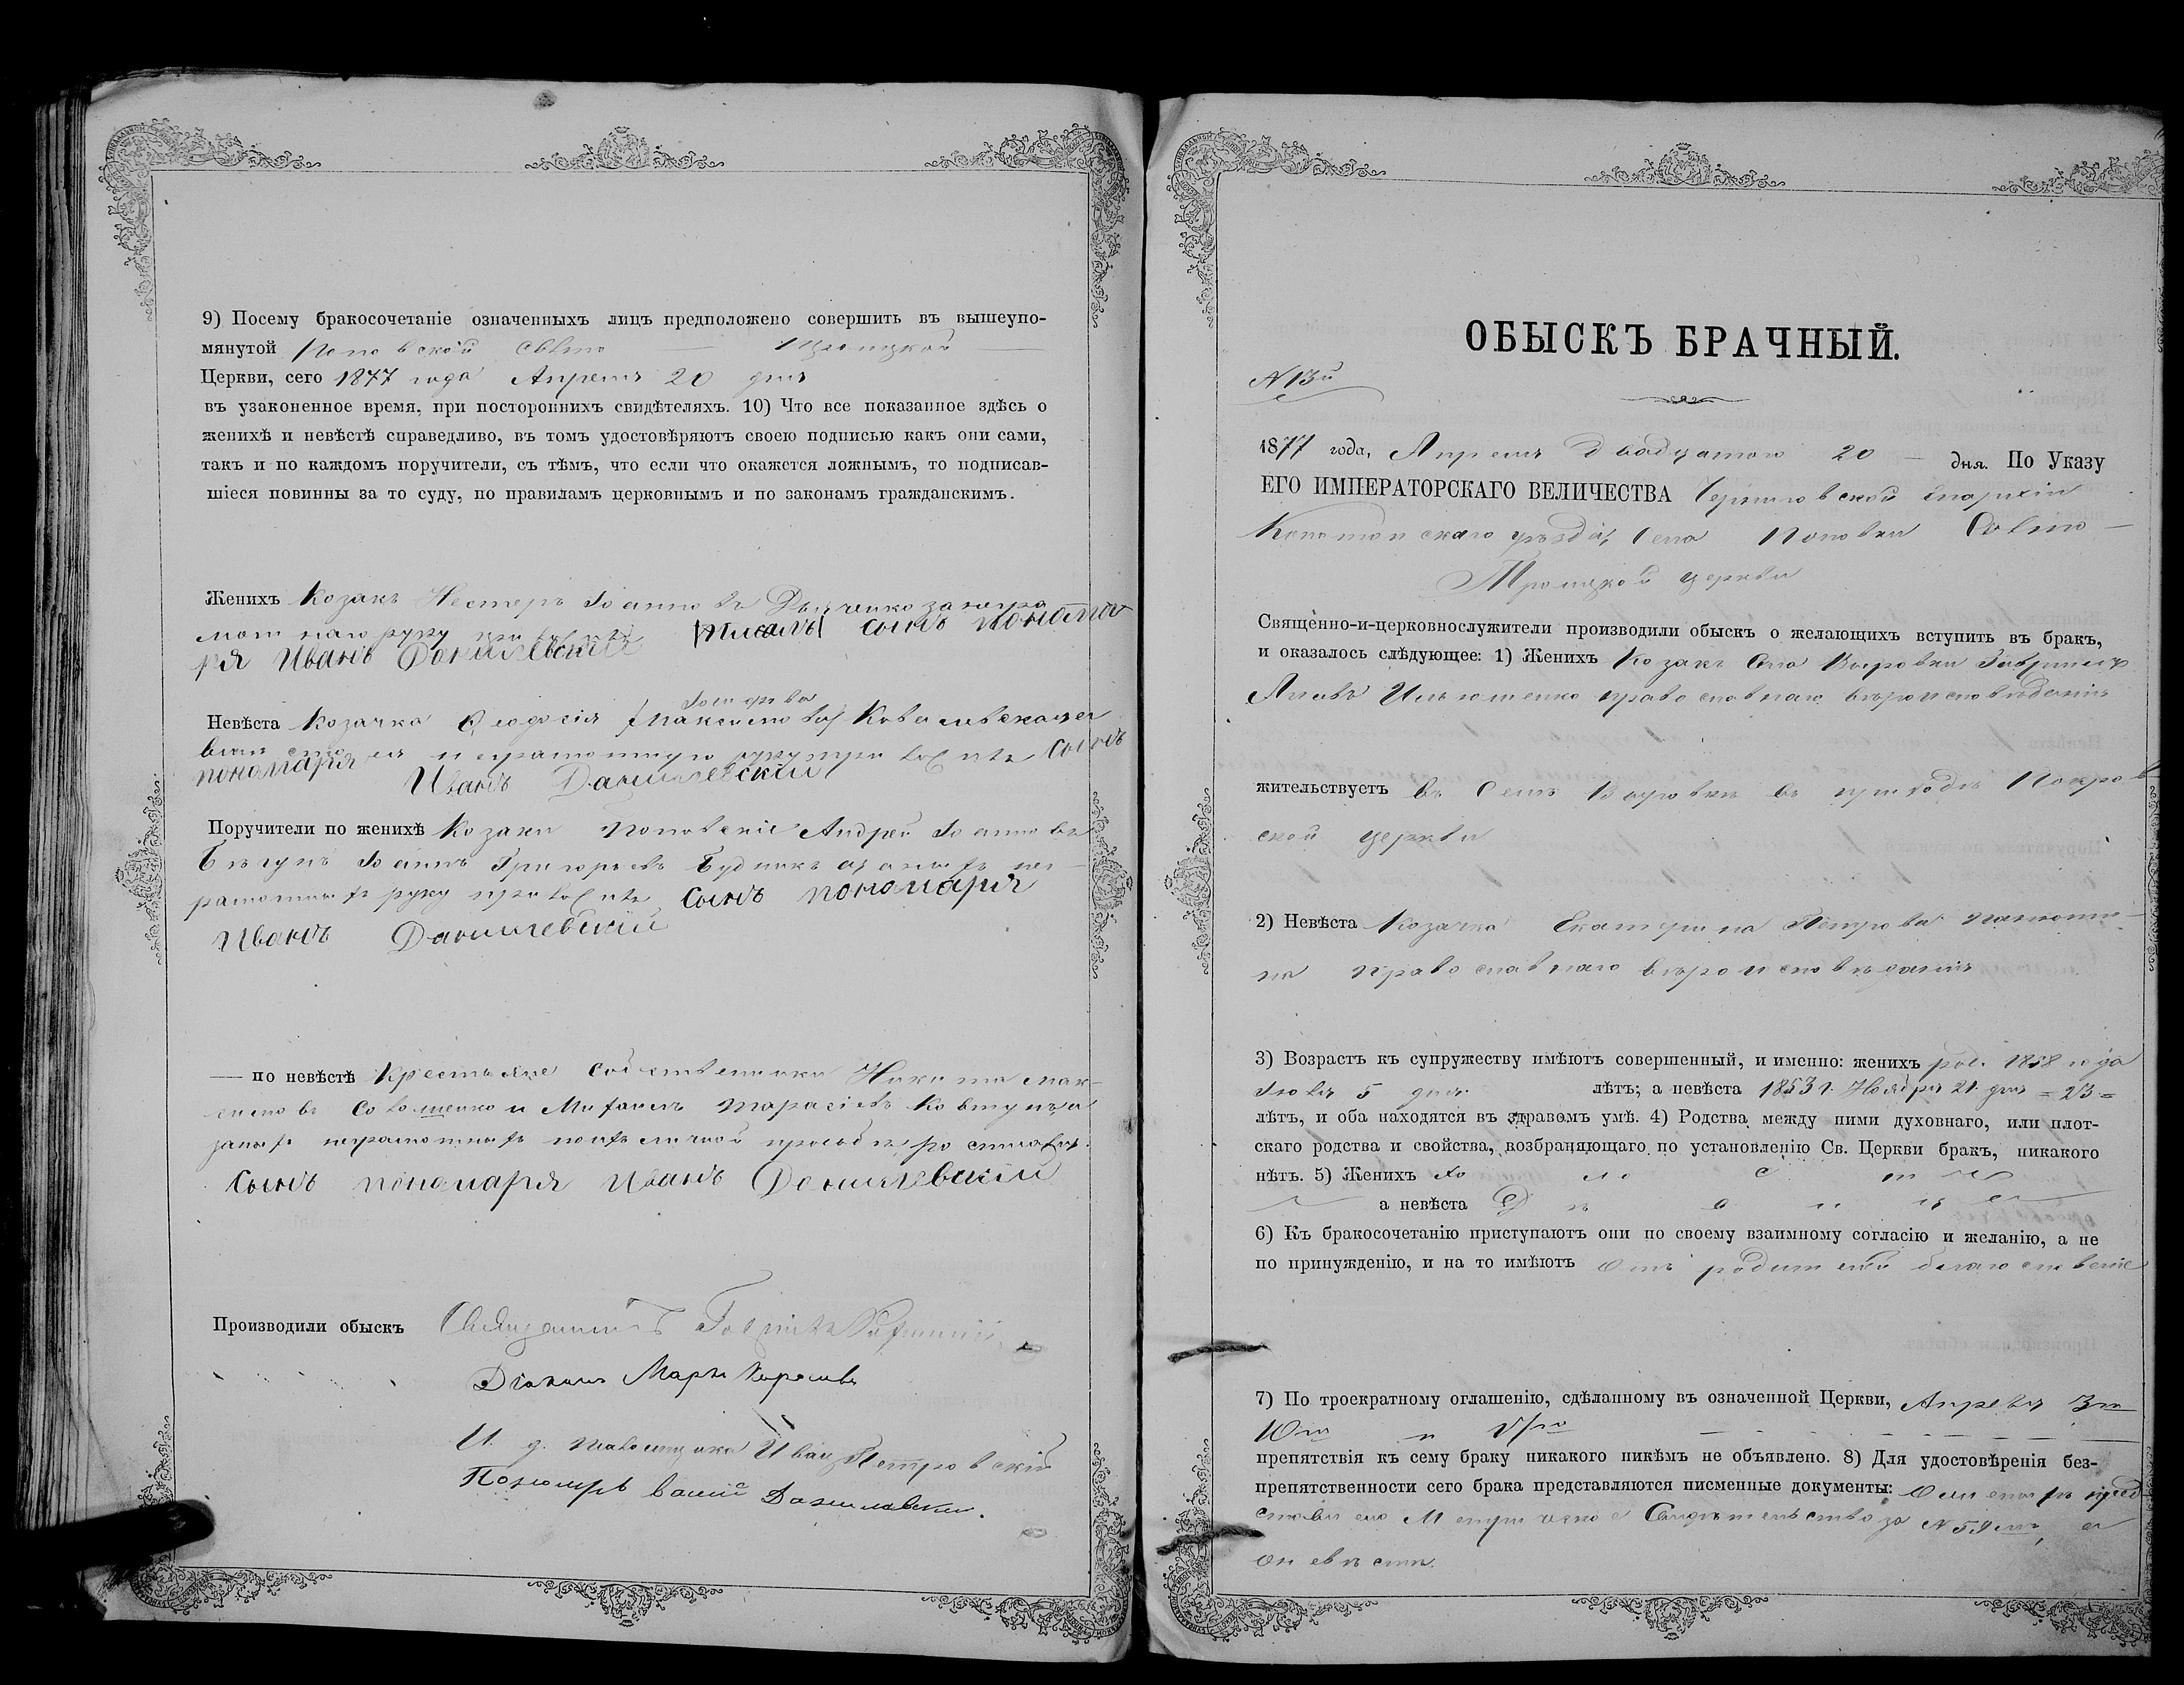 9) Посему бракосочетаніе означенныхъ лицъ предположено совершить въ вышеупо-
мянутой Поповской Свято Троицкой
Церкви, сего 1877 года Апреля 20 дня
въ узаконенное время, при постороннихъ свидѣтеляхъ. 10) Что все показанное здѣсь о
женихѣ и невѣстѣ справедливо, въ томъ удостовѣряютъ своею подписью какъ они сами,
такъ и по каждомъ поручители, съ тѣмъ, что если что окажется ложнымъ, то подписав-
шіеся повинны за то суду, по правиламъ церковнымъ и по законамъ гражданскимъ.
Женихъ Козакъ Несторъ Іоанновъ
руку сынъ понома
ря Иванъ Данилевскій
Невѣста Козачка Ѳеодосія
неграмотную руку сынъ
пономаря Иванъ Данилевскій
Поручители по женихѣ Козаки Поповскіе Андрей Іоанновъ
Іоаннъ Григорьевъ Будникъ а за нихъ нег
рамотныхъ руку сынъ пономаря
Иванъ Данилевскій
— по невѣстѣ Крестьяне собственники Никита Мак-
симовъ и Михаилъ Тарасіевъ Ковтунъ а
за ныхъ неграмотныхъ по ихъ личной прозьбѣ росписался
сынъ пономаря Иванъ Данилевскій
Производили обыскъ Священникъ
Діаконъ Маркъ
И. д. псаломщика Иванъ Петровскій
Пономарь Данилевскій.
ОБЫСКЪ БРАЧНЫЙ.
N 13й
1877 года, Апреля двадцатого 20 — дня. По Указу
ЕГО ИМПЕРАТОРСКАГО ВЕЛИЧЕСТВА Черниговской епархіи
Конотопскаго уѣзда, села Поповки Свято-
Троицкой церкви
Священно-и-церковнослужители производили обыскъ о желающихъ вступить въ бракъ,
и оказалось слѣдующее: 1) Женихъ Козакъ села Выровки Гавріилъ
Ильюшенко православнаго вѣроисповѣданія
жительствуетъ въ селѣ Выровкѣ въ приходѣ Покров
ской церкви
2) Невѣста Козачка Екатерина Петрова
на православнаго вѣроисповѣданія
3) Возрастъ къ супружеству имѣютъ совершенный, и именно: женихъ род. 1858 года
5 дня лѣтъ; а невѣста 1853 г. Ноября 21 дня = 23 =
лѣтъ, и оба находятся въ здравомъ умѣ. 4) Родства между ними духовнаго, или плот-
скаго родства и свойства, возбраняющаго по установленію Св. Церкви бракъ, никакого
нѣтъ. 5) Женихъ Холостъ
а невѣста Дѣвица
6) Къ бракосочетанію приступаютъ они по своему взаимному согласію и желанію, а не
по принужденію, и на то имѣютъ отъ родителей благословеніе
7) По троекратному оглашенію, сдѣланному въ означенной Церкви, Апреля 3го
10го и
препятствія къ сему браку никакого никѣмъ не объявлено. 8) Для удостовѣренія без-
препятственности сего брака представляются писменные документы: О женихѣ пред
ставлено Метрическое Свидѣтельство за N а
О невѣстѣ